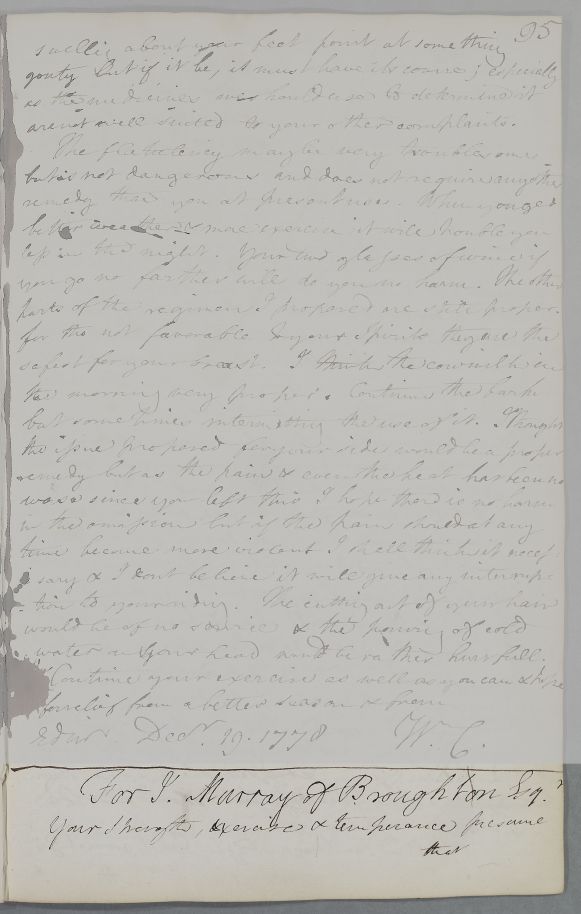 95
swelling about your feet point at something
gouty but if it be, it must have its course; especially
as the medicines we should use to determine it
are not well suited to your other complaints.
The flatulency may be very troublesome
but is not dangerous and does not require any other
remedy than you at present use. When you get
better weather & more exercise it will trouble you
less in the night. Your two glasses of wine if
you go no farther will do you no harm. The other
parts of the regimen I proposed are still proper
for tho not favorable to your Spirits they are the
safest for your breast. I think the cow milk in
the morning very proper. Continue the bark
but sometimes intermitting the use of it. I thought
the issue proposed for your sides would be a proper
remedy but as the pain & even the heat has been no
worse since you left this I hope there is no harm
in the omission but if the pain should at any
time become more violent I shall think it neces
sary & I dont believe it will give any interrup
tion to your riding. The cutting out of your hair
would be of no service & the pouring of cold
water on your head would be rather hurtfull.
Continue your exercise as well as you can & hope
for relief from a better season & from
Edinr. Decr. 19. 1778 W. C.
For J. Murray of Broughton Esqr.
Your Strength, exercise & temperance presume
that